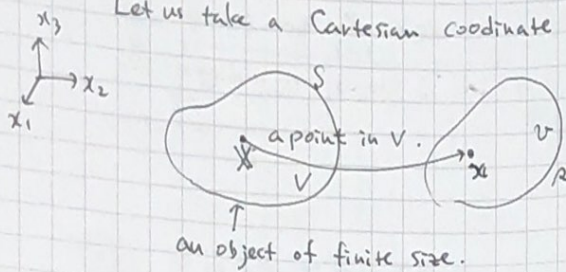 Let us take a Cartesian coodinate
x3
x2
x1
S
a point in V.
X
V
x
v
an object of finite size.